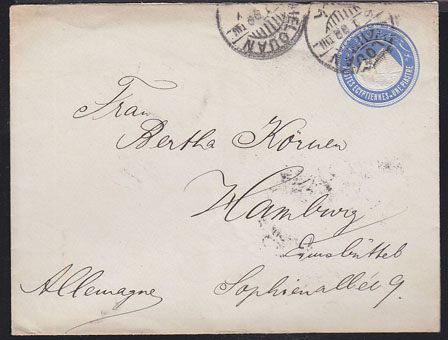 HELOUAN
POSTES EGYPTIENNES
UNE PIASTRE
Frau
Bertha Körner
Hamburg
Eimsbüttel
Allemagne
Sophienallée 9.